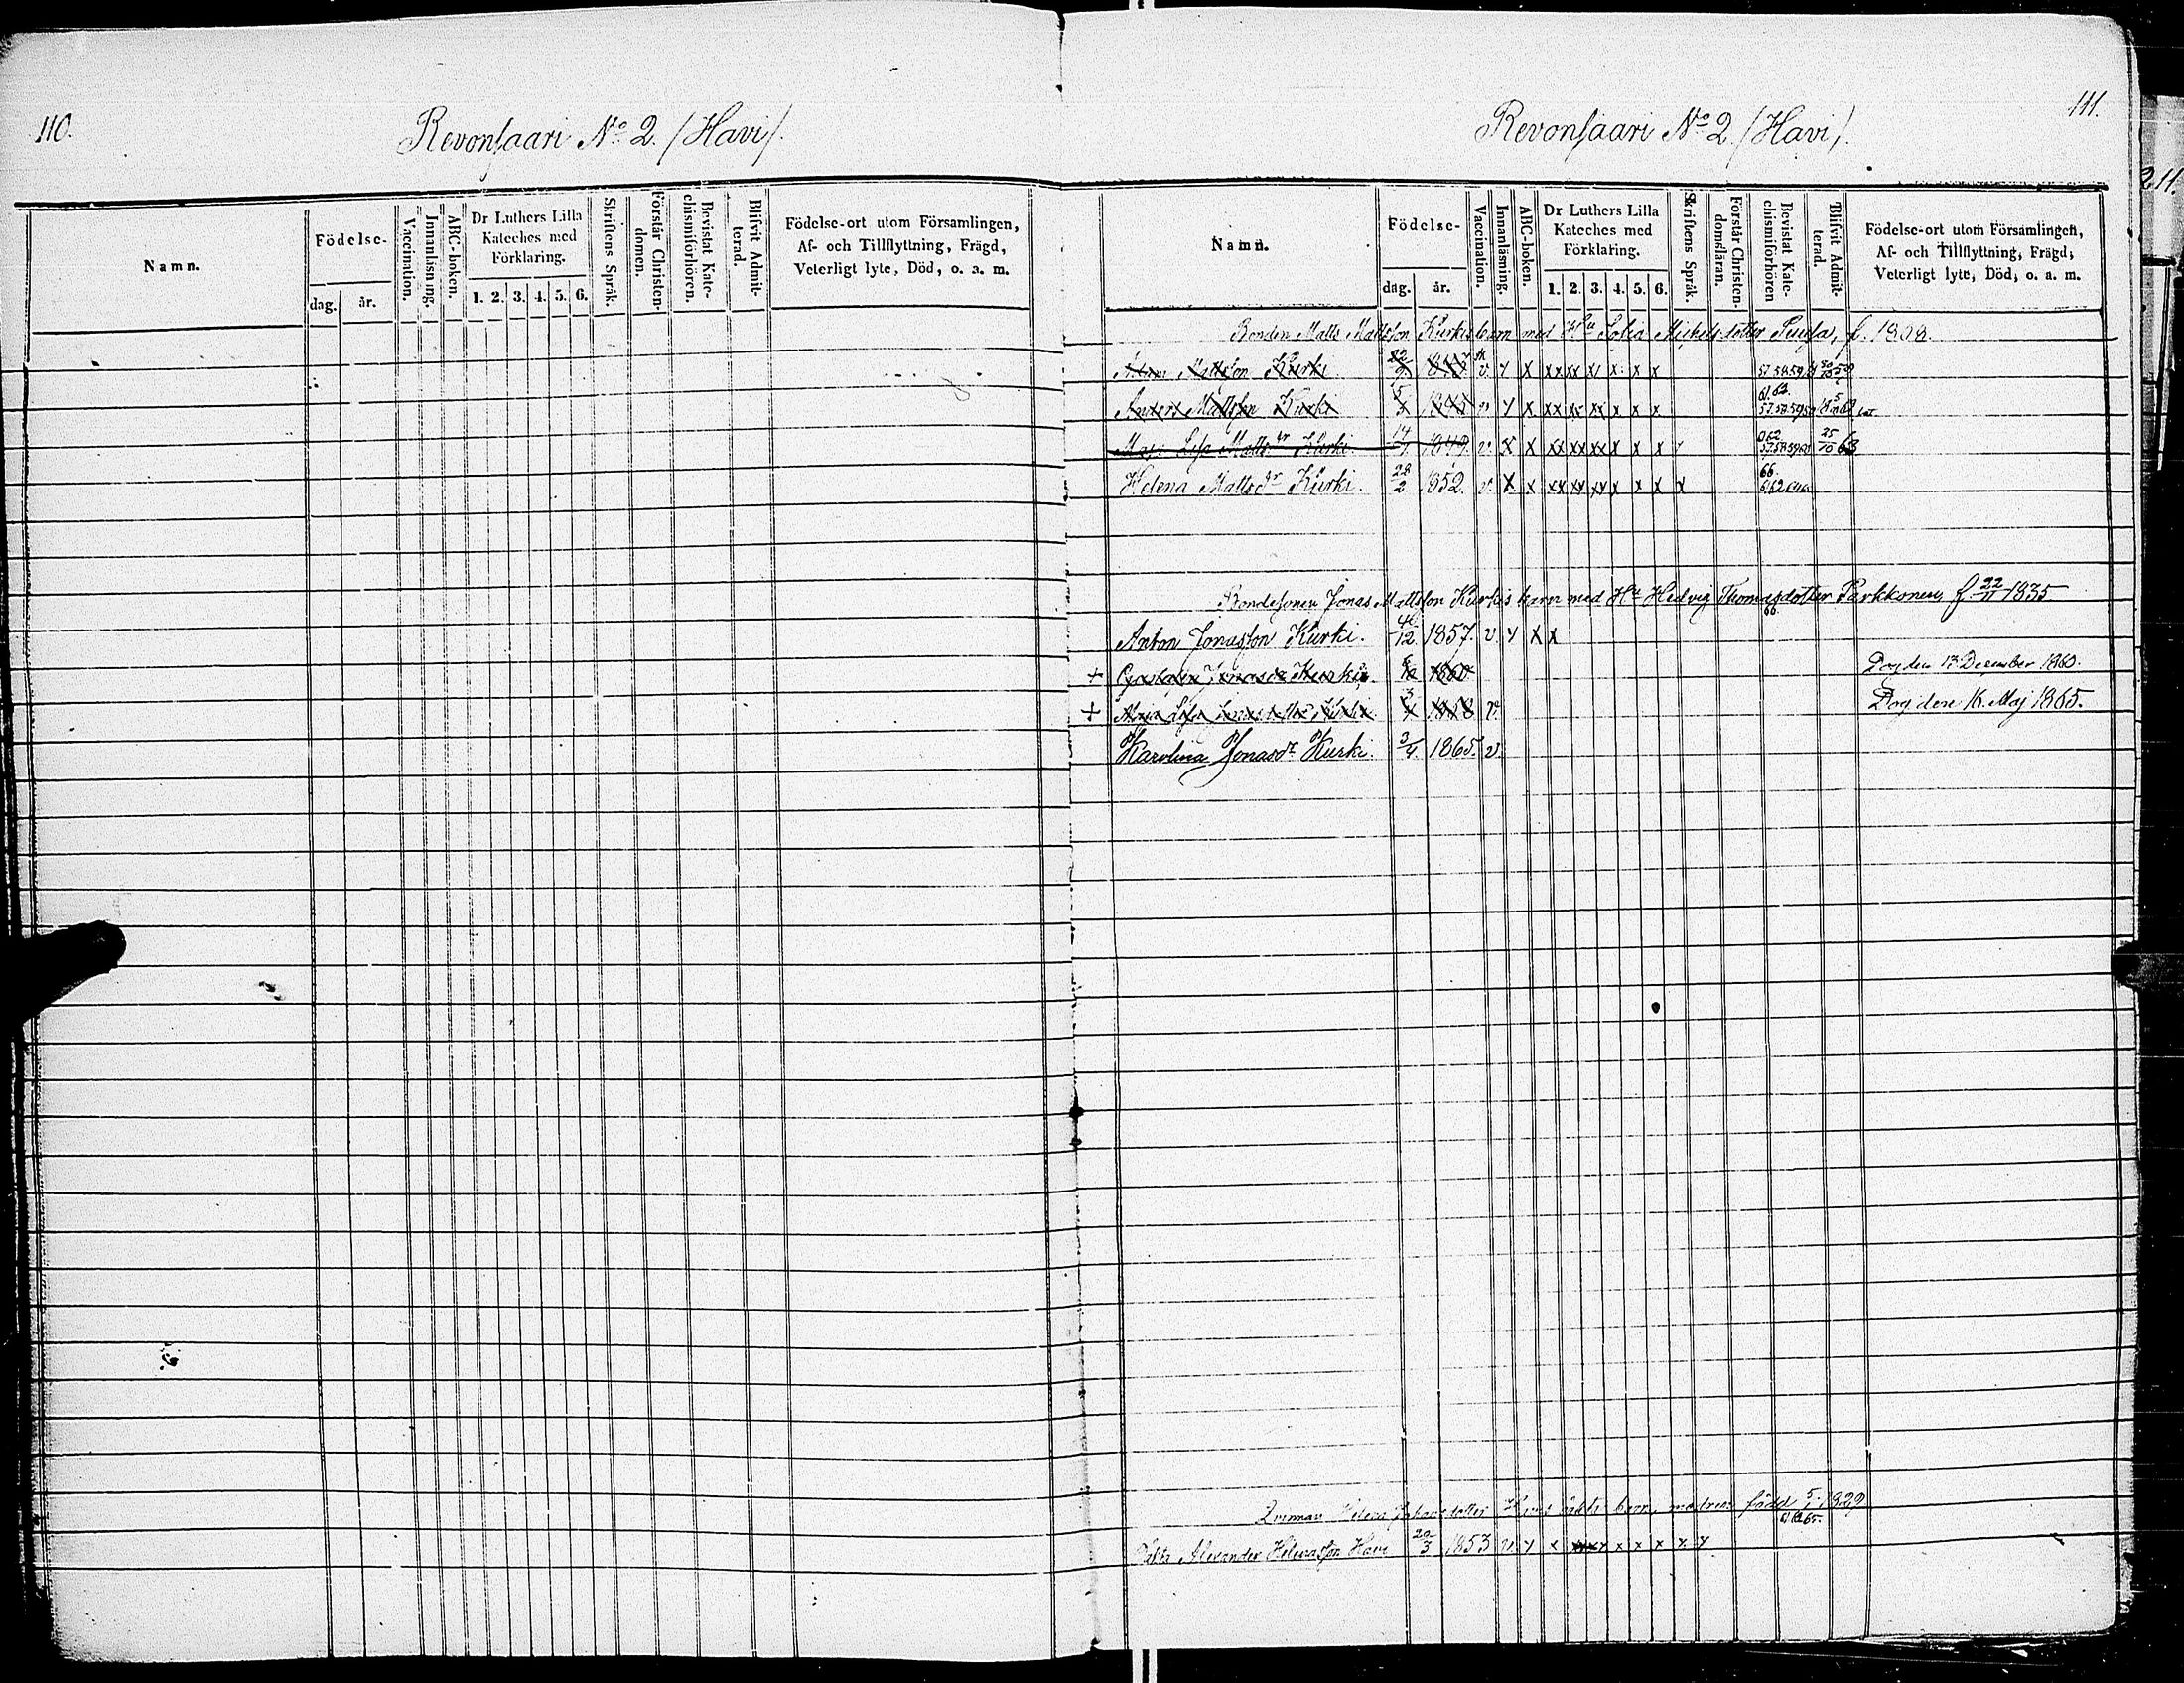 110.
Revonsaari No 2. /Havi/.
Namn.
Födelse-
dag. år.
Vaccination.
Innanläsning.
ABC-boken.
Dr Luthers Lilla
Kateches med
Förklaring.
1. 2. 3. 4. 5. 6.
Skriftens Språk.
Förstår Christen-
domen.
Bevistat Kate-
chismiförhören.
Blifvit Admit-
terad.
Födelse-ort utom Församlingen,
Af- och Tillflyttning, Frägd,
Veterligt lyte, Död, o. a. m.
111.
Revonsaari No 2 /Havi/.
Namn.
Födelse-
dag. år.
Vaccination.
Innanläsning.
ABC-boken.
Dr Luthers Lilla
Kateches med
Förklaring.
1. 2. 3. 4. 5. 6.
Skriftens Språk.
Förstår Christen-
domsläran.
Bevistat Kate-
chismiförhören
Blifvit Admit-
terad.
Födelse-ort utom Församlingen,
Af- och Tillflyttning, Frägd,
Veterligt lyte, Död, o. a. m.
Bonden Matts Mattsson Kurkis barn med Hu Sofia Michelsdotter f. 1808.
Mattsson Kurki
Anders Mattsson Kurki
Maja Lisa Mattsdr Kurki. 14 1849. v. x x xx xx xx x x x 25/10 63
Helena Mattsdr Kurki. 28/2 1852. v. x x xx xx xx x x x x 66.
Bondesonen Jonas Mattsson Kurkis barn med Hu Hedvig Thomasdotter Parkkonen, f 22/11 1835
Anton Jonasson Kurki. 12. 1857. v. y x x
+ Jonasdr Kurki. 1860 Dog den 13 December 1860.
+ Maja Lisa Jonasdotter Kurki. 1858 v. Dog den 16. Maj 1865.
Karolina Jonasdr Kurki. 3/4. 1865. v.
Helena barn, modren född 5/1 1829
Alexander Helenasson Havi 20/3 1853 v. y x x x x x x y